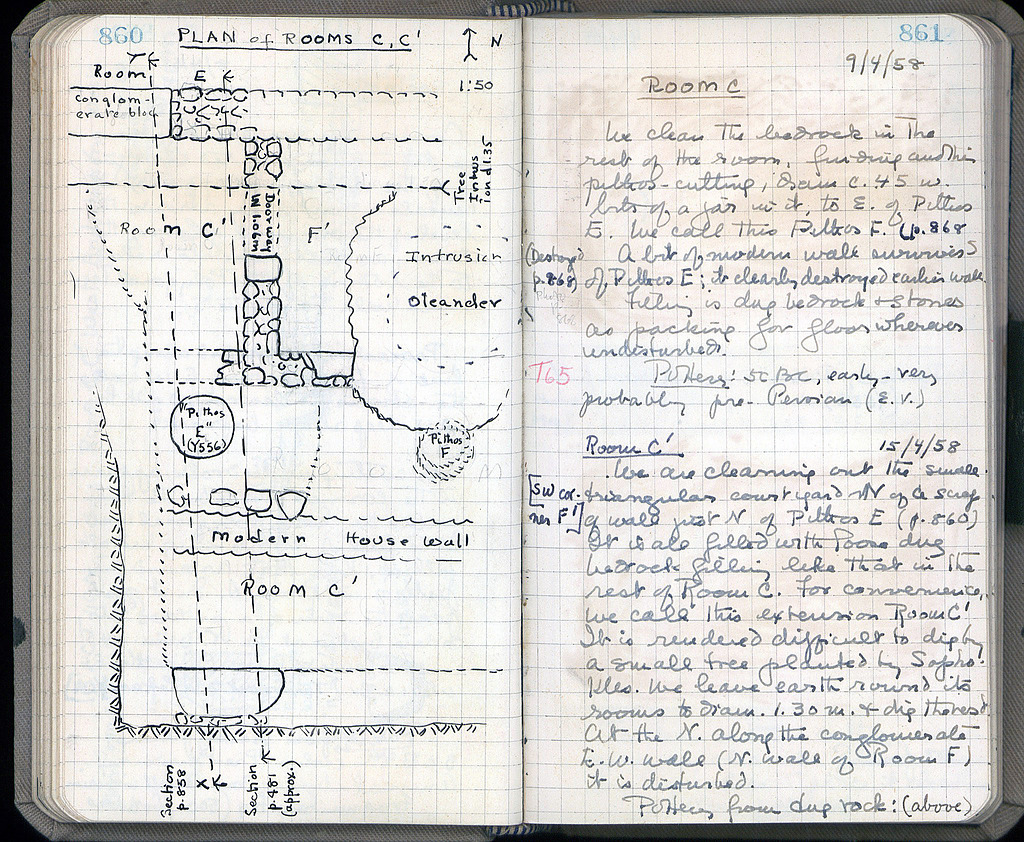 860
PLAN of ROOMS C, C'
N
1:50
Y
Room E
conglom-
erate block
Tree
Intrus
ion d 1.35
Room C'
Doorway
W 1.06m
F'
Intrusion
Oleander
Pithos
E"
(Y556)
Pithos
F
Room
Modern House wall
Room C'
Section
p.858
X
Section
p.481
(approx.)
861
9/4/58
Room C
We clean the bedrock in the
rest of the room, finding another
pithos-cutting, diam c. 45 w.
bits of a jar in it, to E. of Pithos
E. We call this Pithos F. (p. 868
(Destroyed
p.868)
A bit of modern wall survives S
of Pithos E; it clearly destroyed earlier walk.
Filling is dug bedrock + stones
as packing for floor wherever
undisturbed.
T65
Pottery: 5c BC, early - very
probably pre-Persian (E.V.)
Room C' 15/4/58
We are cleaning out the small
[SW cor-
ner F']
triangular courtyard N of the scrap
of wall just N of Pithos E (p. 860)
It is all filled with loose dug
bedrock filling like that in the
rest of Room C. For convenience,
we call this extension Room C'
It is rendered difficult to dig by
a small tree planted by Sopho-
kles. We leave earth round its
rooms to diam. 1.30 m. & dig the rest.
At the N. along the conglomerate
E.W. wall (N. wall of Room F)
it is disturbed.
Pottery from dug rock: (above)